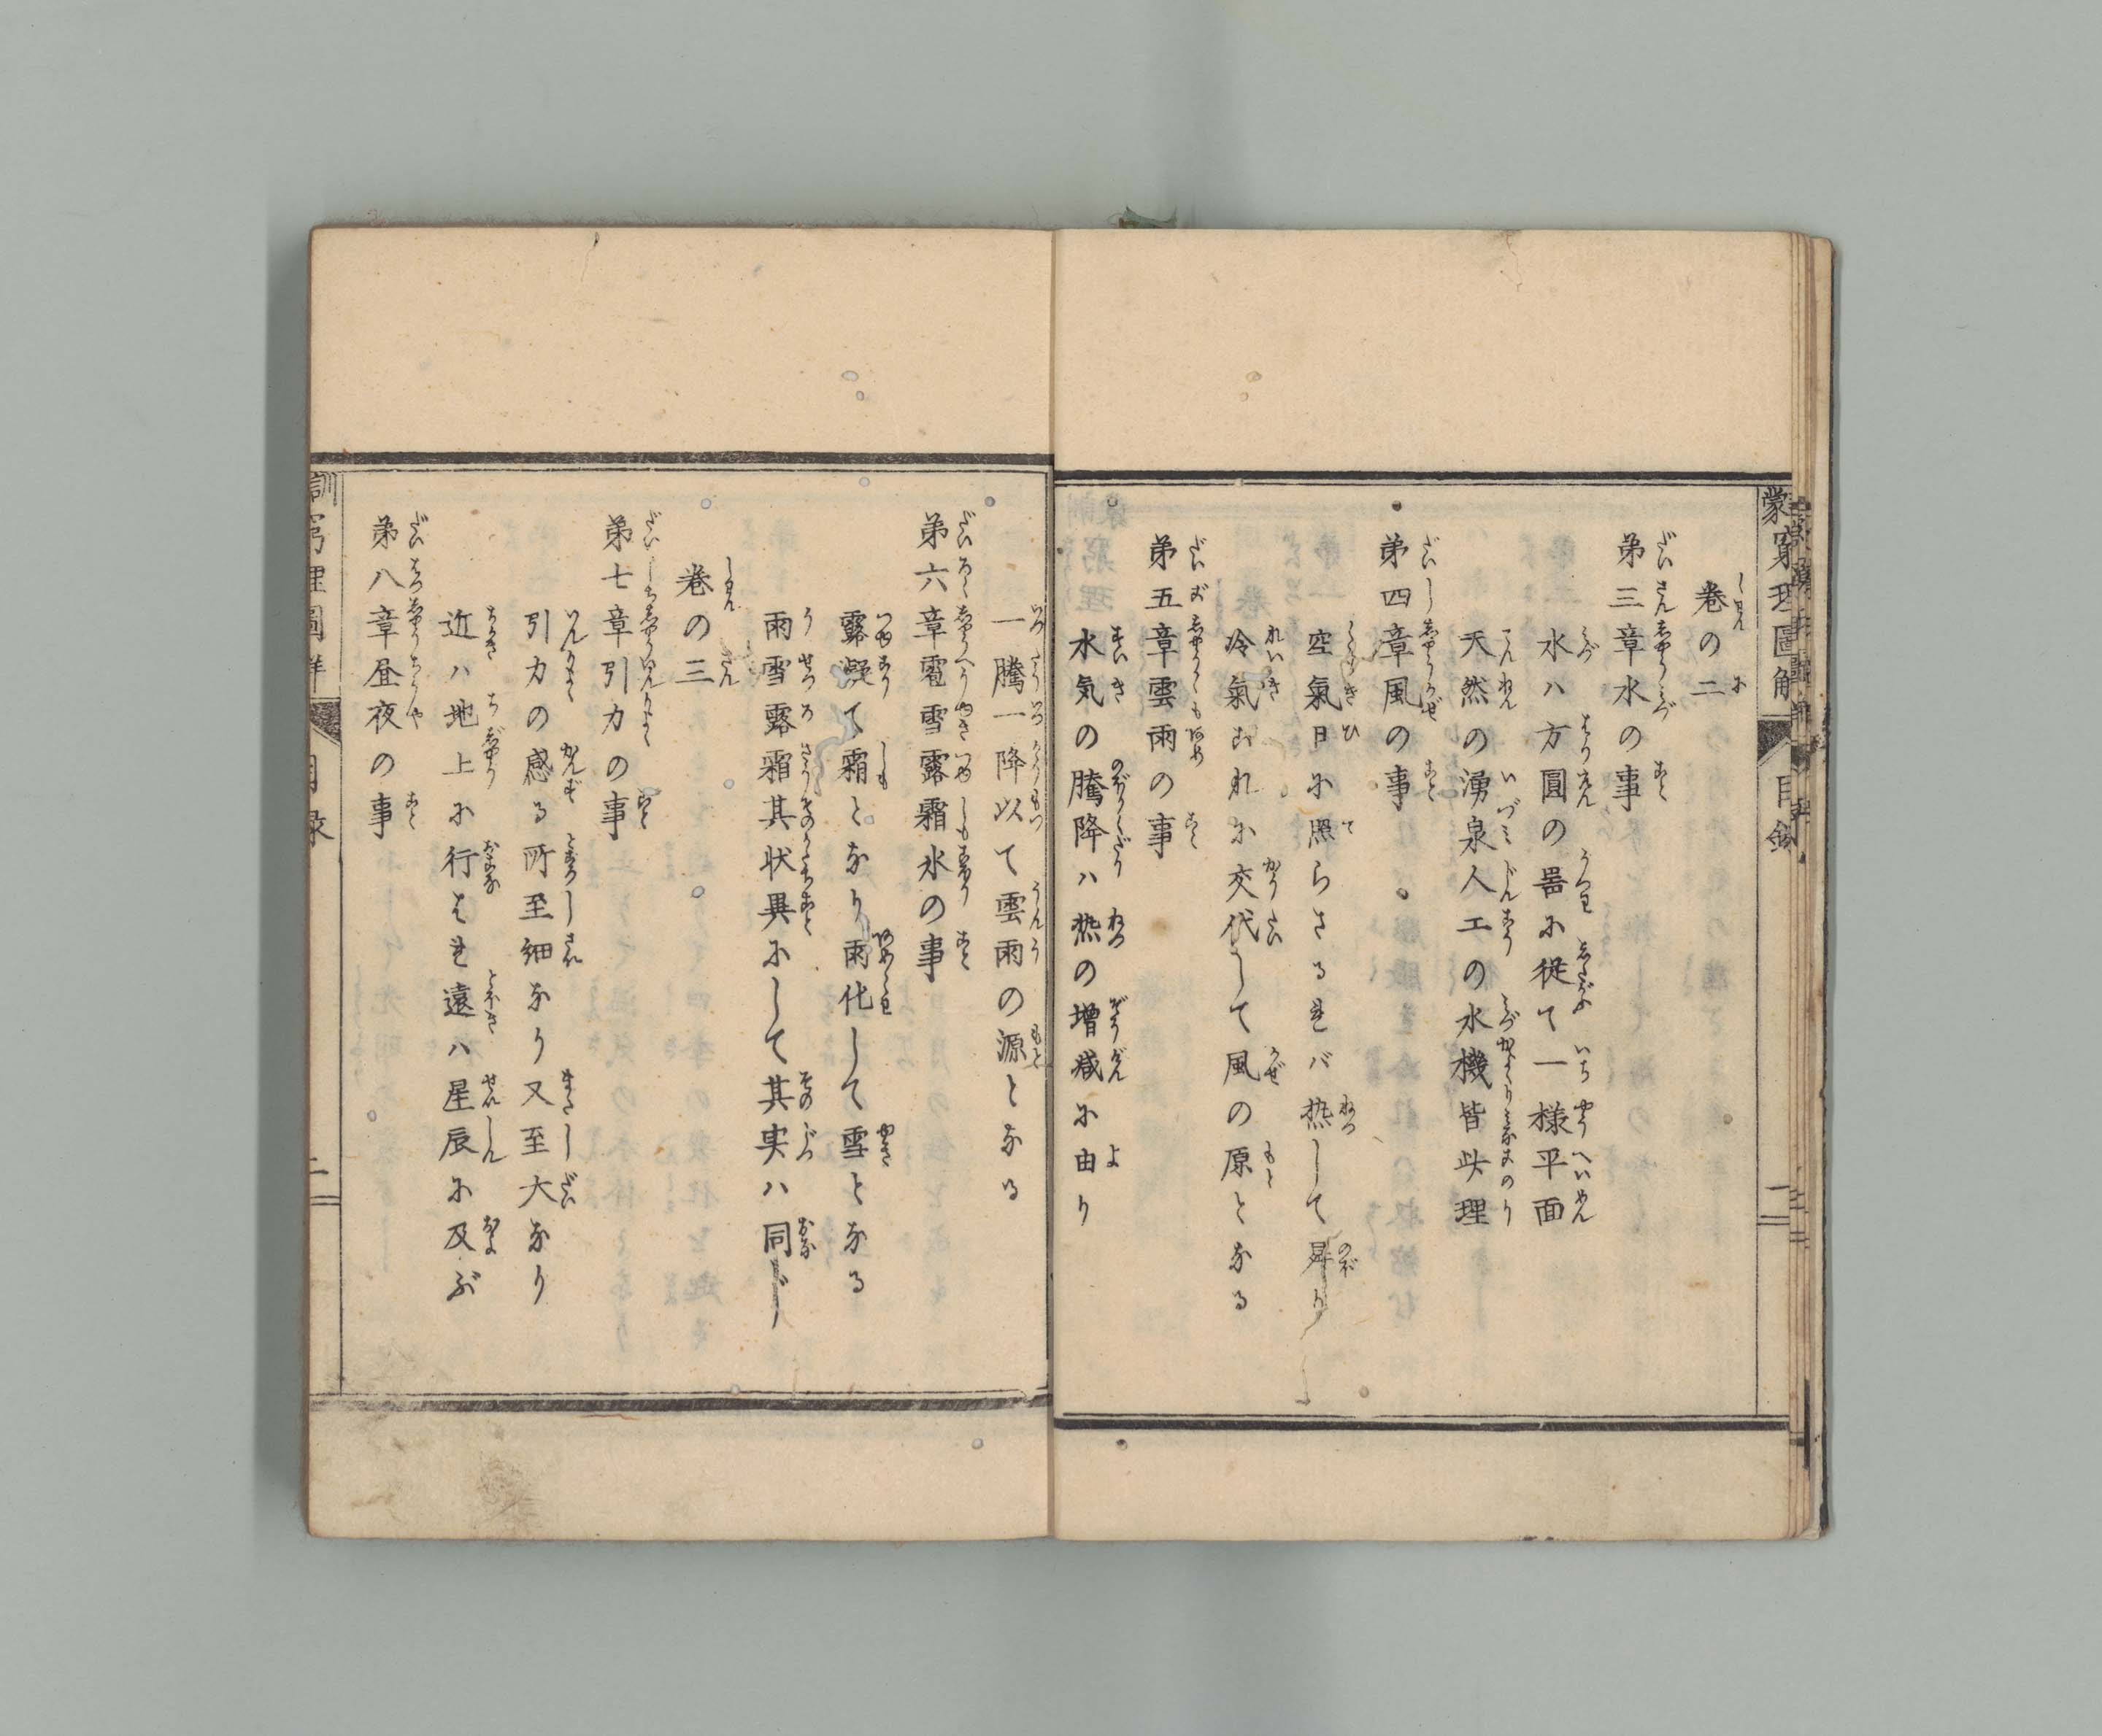 蒙窮理圖解 目録 二
巻の二
第三章水の事
水ハ方圓の器に従て一様平面
天然の湧泉人工の水機皆此理
第四章風の事
空氣日に照らさるれバ热して昇り
冷氣これに交代して風の原となる
第五章雲雨の事
水気の騰降ハ热の増减に由り
一騰一降以て雲雨の源となる
第六章雹雪露霜氷の事
露凝て霜となり雨化して雪となる
雨雪露霜其状異にして其実ハ同じ
巻の三
第七章引力の事
引力の感る所至細なり又至大なり
近ハ地上に行はれ遠ハ星辰に及ぶ
第八章昼夜の事
訓窮理圖解 目録 二